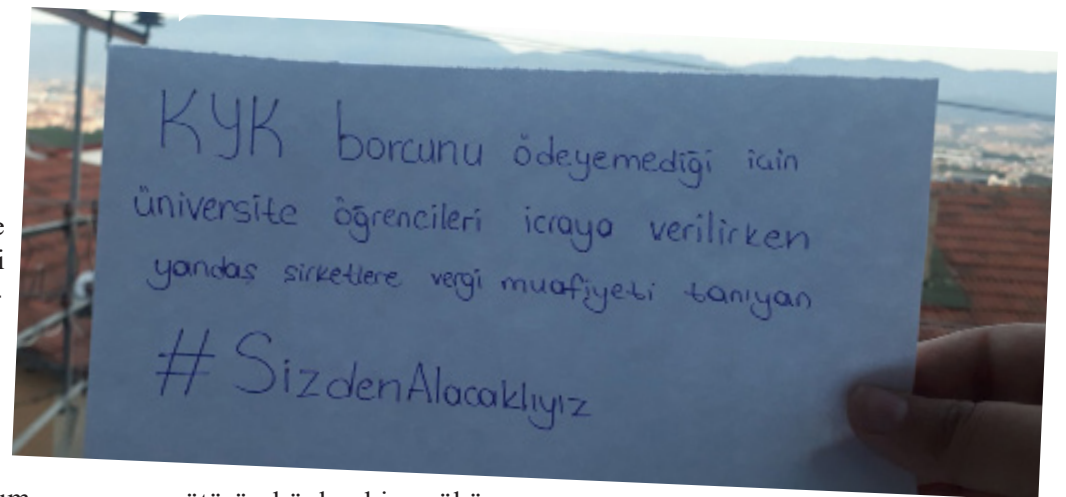 KYK borcunu ödeyemediği için
üniversite öğrencileri icraya verilirken
yandaş şirketlere vergi muafiyeti tanıyan
#SizdenAlacaklıyız